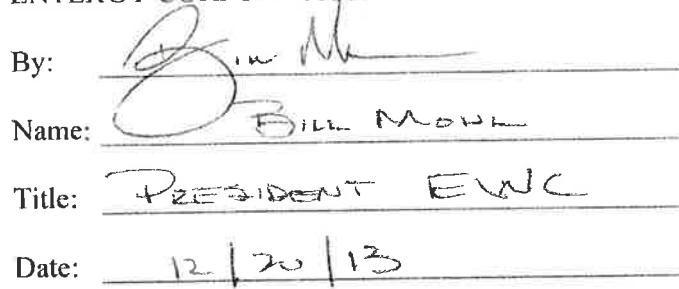 By: Bill Mohl
Name: BILL MOHL
Title: PRESIDENT EWC
Date: 12/20/13